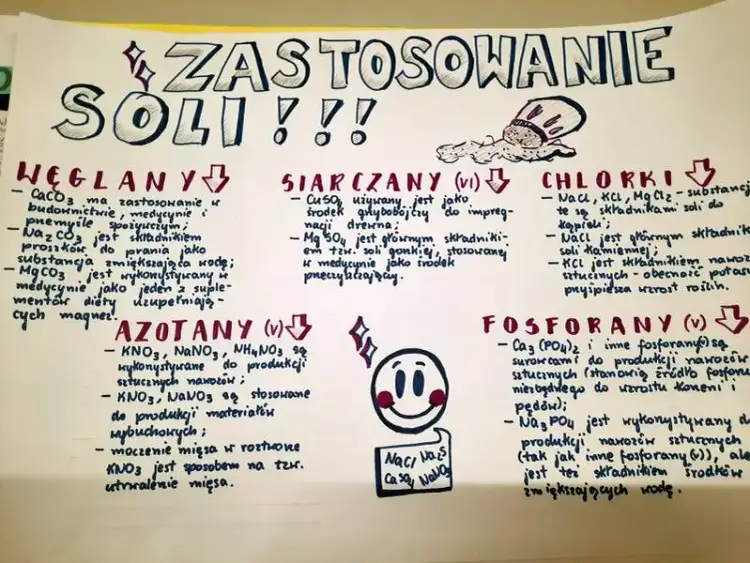 ZASTOSOWANIE
SOLI!!!
WĘGLANY
- CaCO3 ma zastosowanie w
budownictwie, medycynie i
przemyśle spożywczym;
- Na2CO3 jest składnikiem
proszków do prania jako
substancja zmiększająca wodę;
- MgCO3 jest wykorzystywany w
medycynie jako jeden z suple-
mentów diety uzupełniają-
cych magnez.
SIARCZANY (VI)
- CuSO4 używany jest jako
środek grzybobójczy do impreg-
nacji drewna;
- MgSO4 jest głównym składniki-
em tzw. soli gorzkiej, stosowanej
w medycynie jako środek
przeczyszczający.
CHLORKI
- NaCl, KCl, MgCl2 - substancj
te są składnikami soli do
kąpieli;
- NaCl jest głównym składnik
soli kamiennej;
- KCl jest składnikiem nawoz
sztucznych - obecność potas
przyspiesza wzrost roślin.
AZOTANY (V)
- KNO3, NaNO3, NH4NO3 są
wykorzystywane do produkcji
sztucznych nawozów;
- KNO3, NaNO3 są stosowane
do produkcji materiałów
wybuchowych;
- moczenie mięsa w roztworze
KNO3 jest sposobem na tzw.
utrwalenie mięsa.
NaCl Na2S
CaSO4 NaNO3
FOSFORANY (V)
- Ca3(PO4)2 i inne fosforany(V) są
surowcami do produkcji nawozów
sztucznych (stanowią źródło fosforu
niezbędnego do wzrostu korzeni i
pędów);
- Na3PO4 jest wykorzystywany d
produkcji nawozów sztucznych
(tak jak inne fosforany (V)), ale
jest też składnikiem środków
zmiększających wodę.